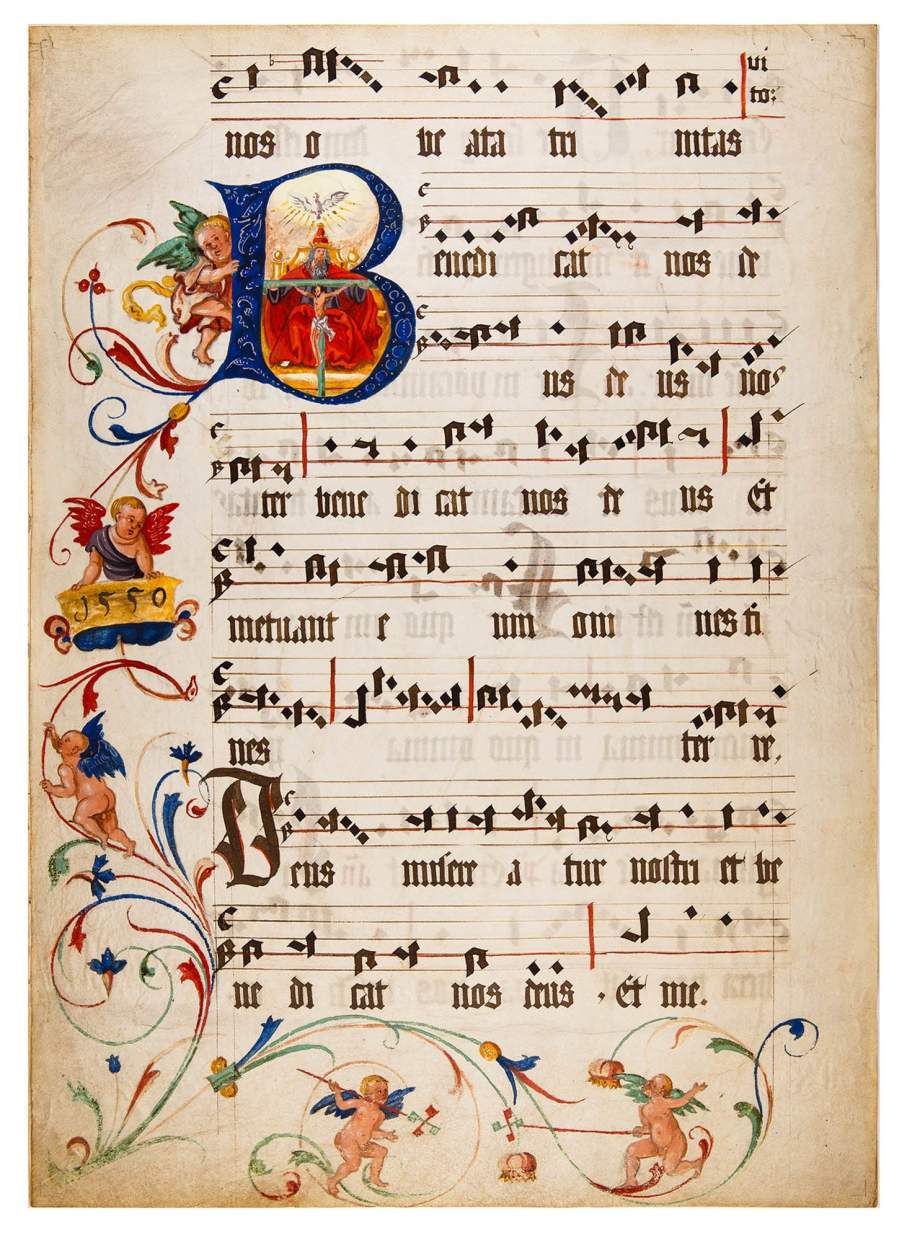 vi
to:
nos o be ata tri nitas
Benedi cat nos de
us de us nos
ter bene di cat nos de us Et
metuant e um om nes fi
1550
nes ter re,
Deus misere a tur nostri et be
ne di cat nos deus . Et me.